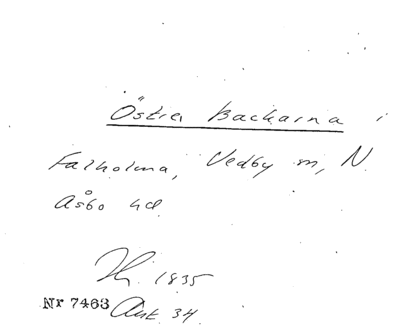 Östra Backarna i
Fälholma, Vedby m, N.
Åsbo hd.
1835
Nr 7463 Akt. 34